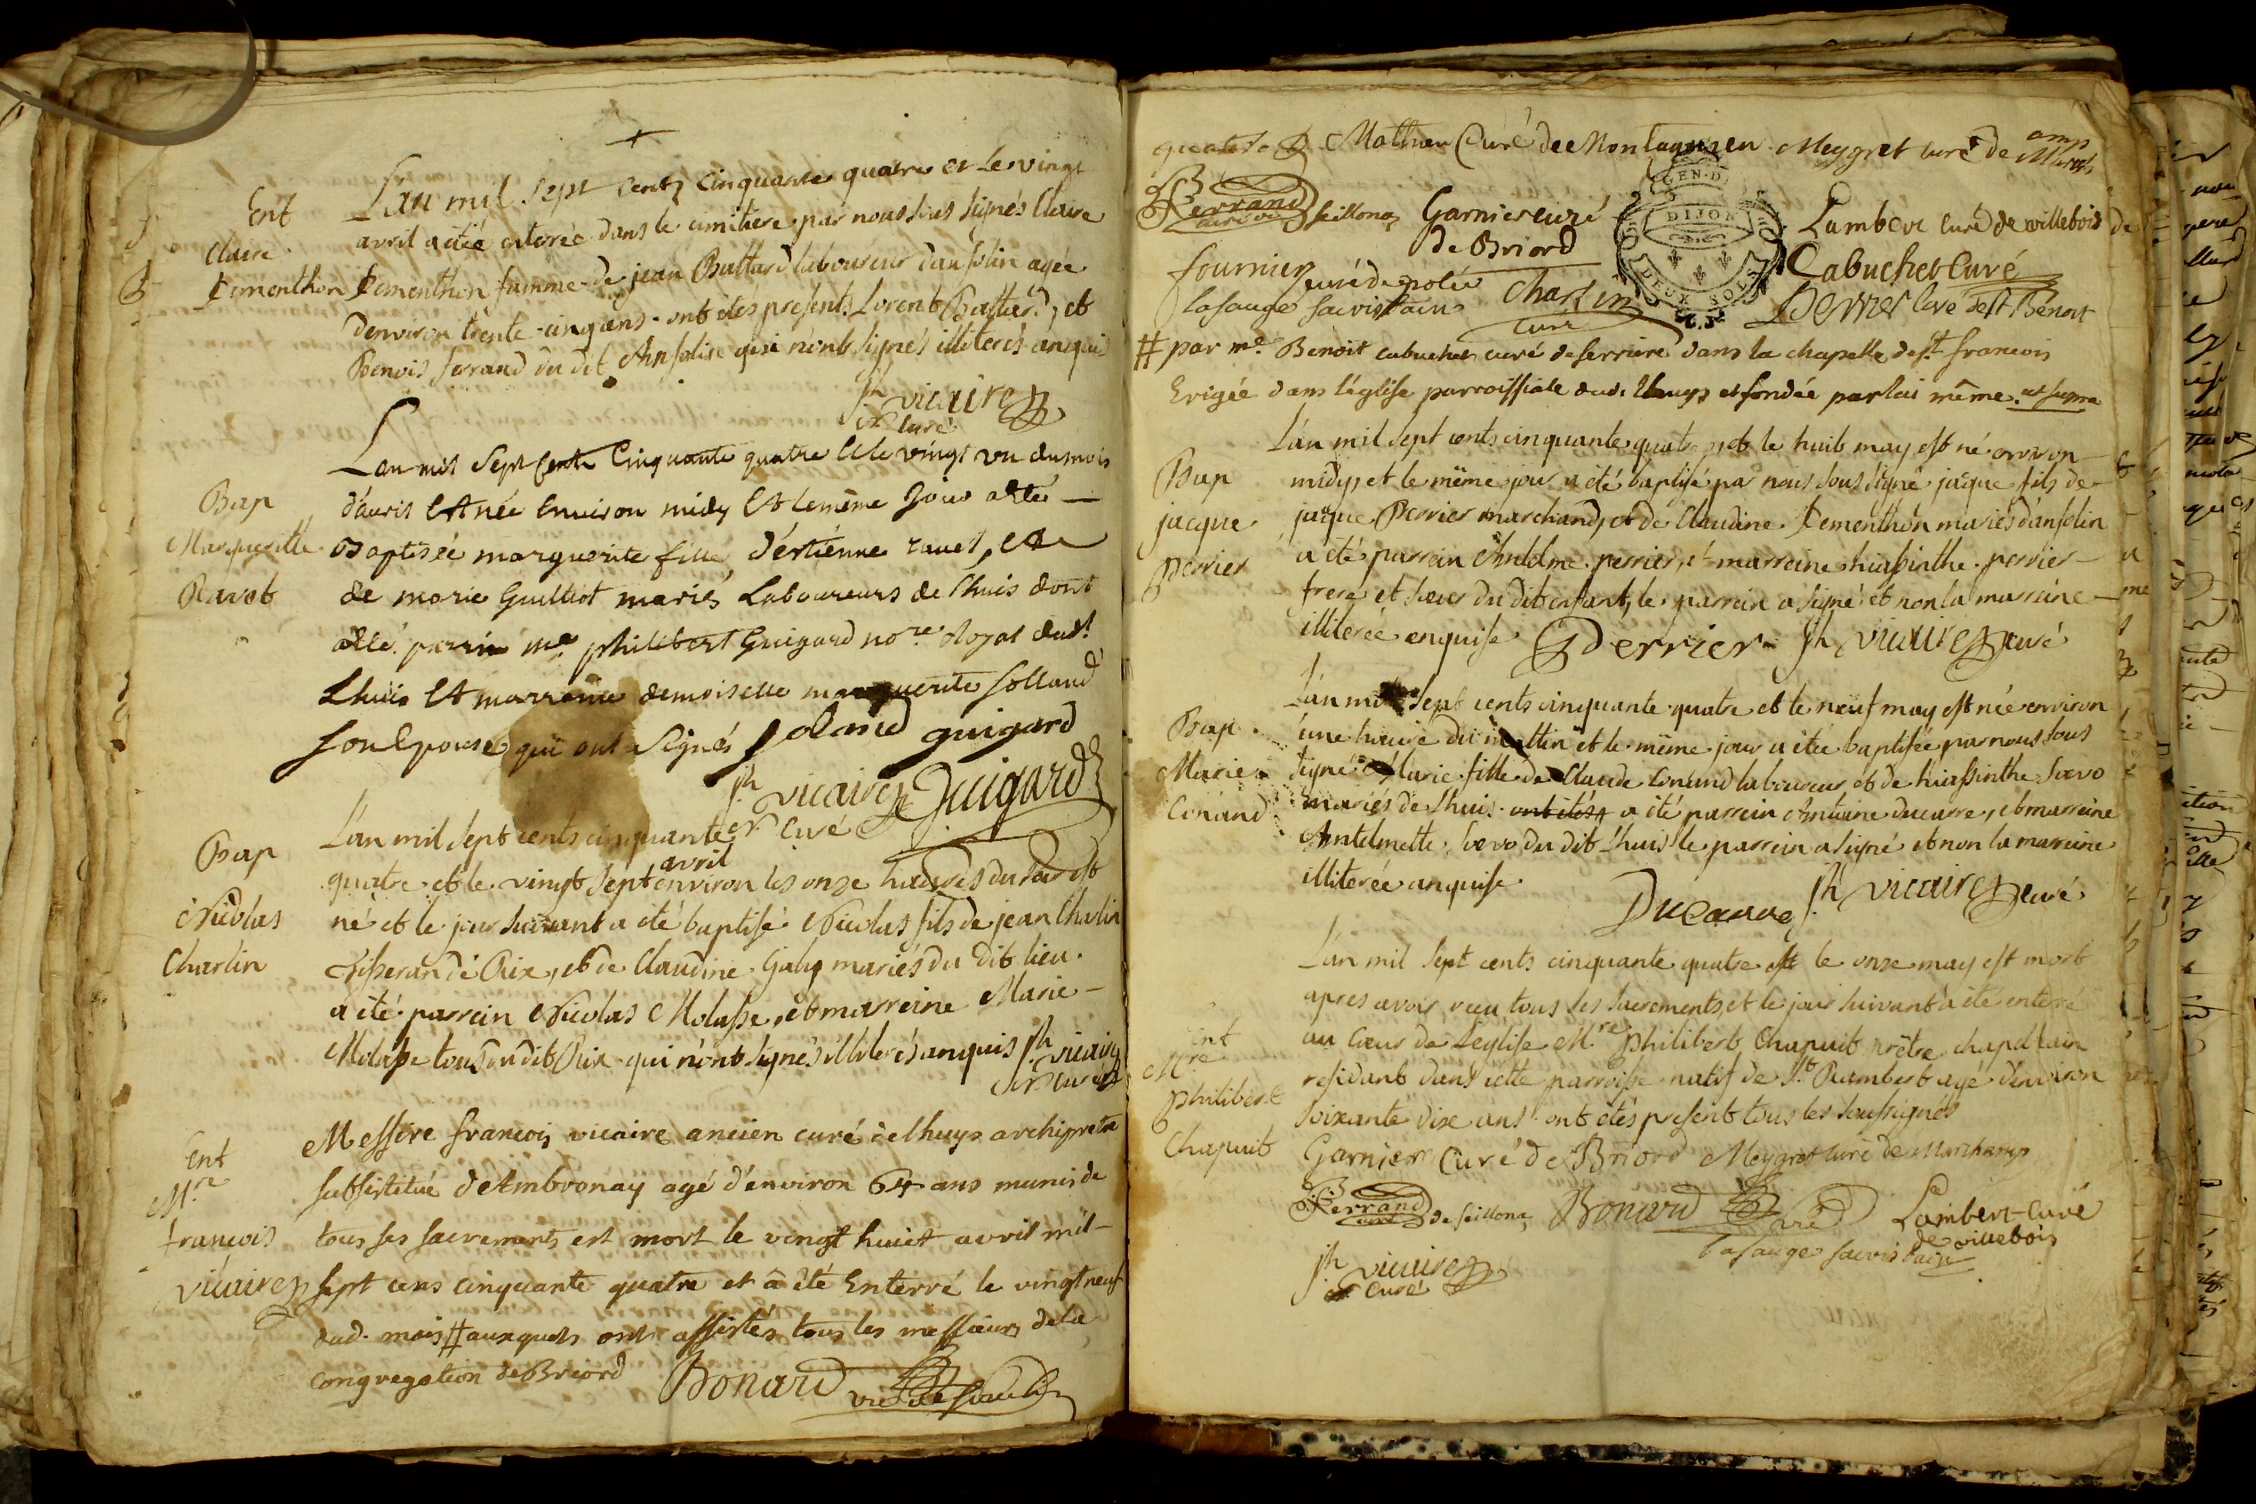 Ent
Claire
Dementhon
L'an mil sept cents cinquante quatre et le vingt
avril a etée enterée dans le cimitiere par nous sous signés Claire
Dementhon famme de jean Battard laboureur d'ansolin agée
denviron trente cinq ans ont étes presents Lorent, et
Benoit ferrand du dit Ansolin qui n'ont signés illiterés anquis
jh vicaire
curé
Bap
Marguerite
Ravet
L'an mil sept cents cinquante quatre Et le vingt un du mois
d'avril Est née Environ midy Et le même jour a été
Baptisée marguerite fille d'estienne ravet, et
de marie Guilliot mariés Laboureurs de lhuis dont
a été parrin me philibert Guigard nore Royal dudt
Lhuis Et marraine demoiselle marguerite solland
son Epouse qui ont signés soland guigard
jh vicaire Guigard
curé
Bap
Nicolas
Charlin
L'an mil sept cents cinquante
quatre et le vingt sept avril environ les onze heures du soir est
né et le jour suivant a été baptisé Nicolas fils de jean Charlin
tisseran de Rix, et de Claudine Galy mariés du dit lieu.
a été parrein Nicolas Molasse, et marreine Marie
Molasse tous du dit Rix qui n'ont signés illiterés anquis jh vicaire
curé
Ent
Mre
francois
vicaire
Messire francois vicaire ancien curé de lhuys archipretre
substitué d'Ambronay agé d'environ 64 ans munis de
tous ses sacrements est mort le vingt huict avril mil
sept cens cinquante quatre et a été Enterré le vingt neuf
dud. mois # auxquels ont assistés tous les messieurs de la
congregation de Briord Bonard
Mathieu Curé de Montagnieu Meygret curé de Marchamps
ferrand curé de seillona Garnier curé
de Briord
GEN. D.
DIJON
DEUX SOLS
Lambert curé de villebois
fournier curé de
Cabuchet Curé
lasauge sacristain Charlin
curé
Perrier curé de st Bénoit
# par me Benoit cabuchet curé de serriere dans la chapelle de st francois
Erigée dans l'église parroissiale dudt lhuys et fondée par lui même. ut supra
Bap
jacque
perrier
L'an mil sept cents cinquante quatre, et le huit may est né environ
midy, et le même jour a été baptisé par nous sous signé jacque fils de
jacque Perrier marchand, et de Claudine Dementhon mariés d'ansolin
a été parrein Anthelme perrier, et marreine hiassinthe perrier
frere et soeur du dit enfant, le parrein a signé et non la marreine
illiterée enquise Perrier jh vicaire curé
Bap
Marie
Conand
L'an mil sept cents cinquante quatre et le neuf may est née environ
une heure du mattin et le même jour a étée baptisée par nous sous
signé Marie fille de Claude Conand laboureur, et de hiassinthe servo
mariés de Lhuis. ont étés a été parrein Antoine ducarre, et marreine
Antelmette servo du dit Lhuis le parrein a signé et non la marreine
illiterée anquise.
Ducarre jh vicaire curé
Ent
Mre
philibert
Chapuit
L'an mil sept cents cinquante quatre et le onze may est mort
apres avoir reçu tous ses sacrements, et le jour suivant a été enterré
au coeur de L'église Mre philibert Chapuit prêtre chapellain
residant dans cette parroisse natif de St Rambert agé denviron
soixante dix ans. ont étés present tous les soussignés
Garnier Curé de Briord Meygret curé de Marchamps
ferrand curé de seillona Bonard Lambert Curé
de villebois
lasauge sacristain
jh vicaire
curé